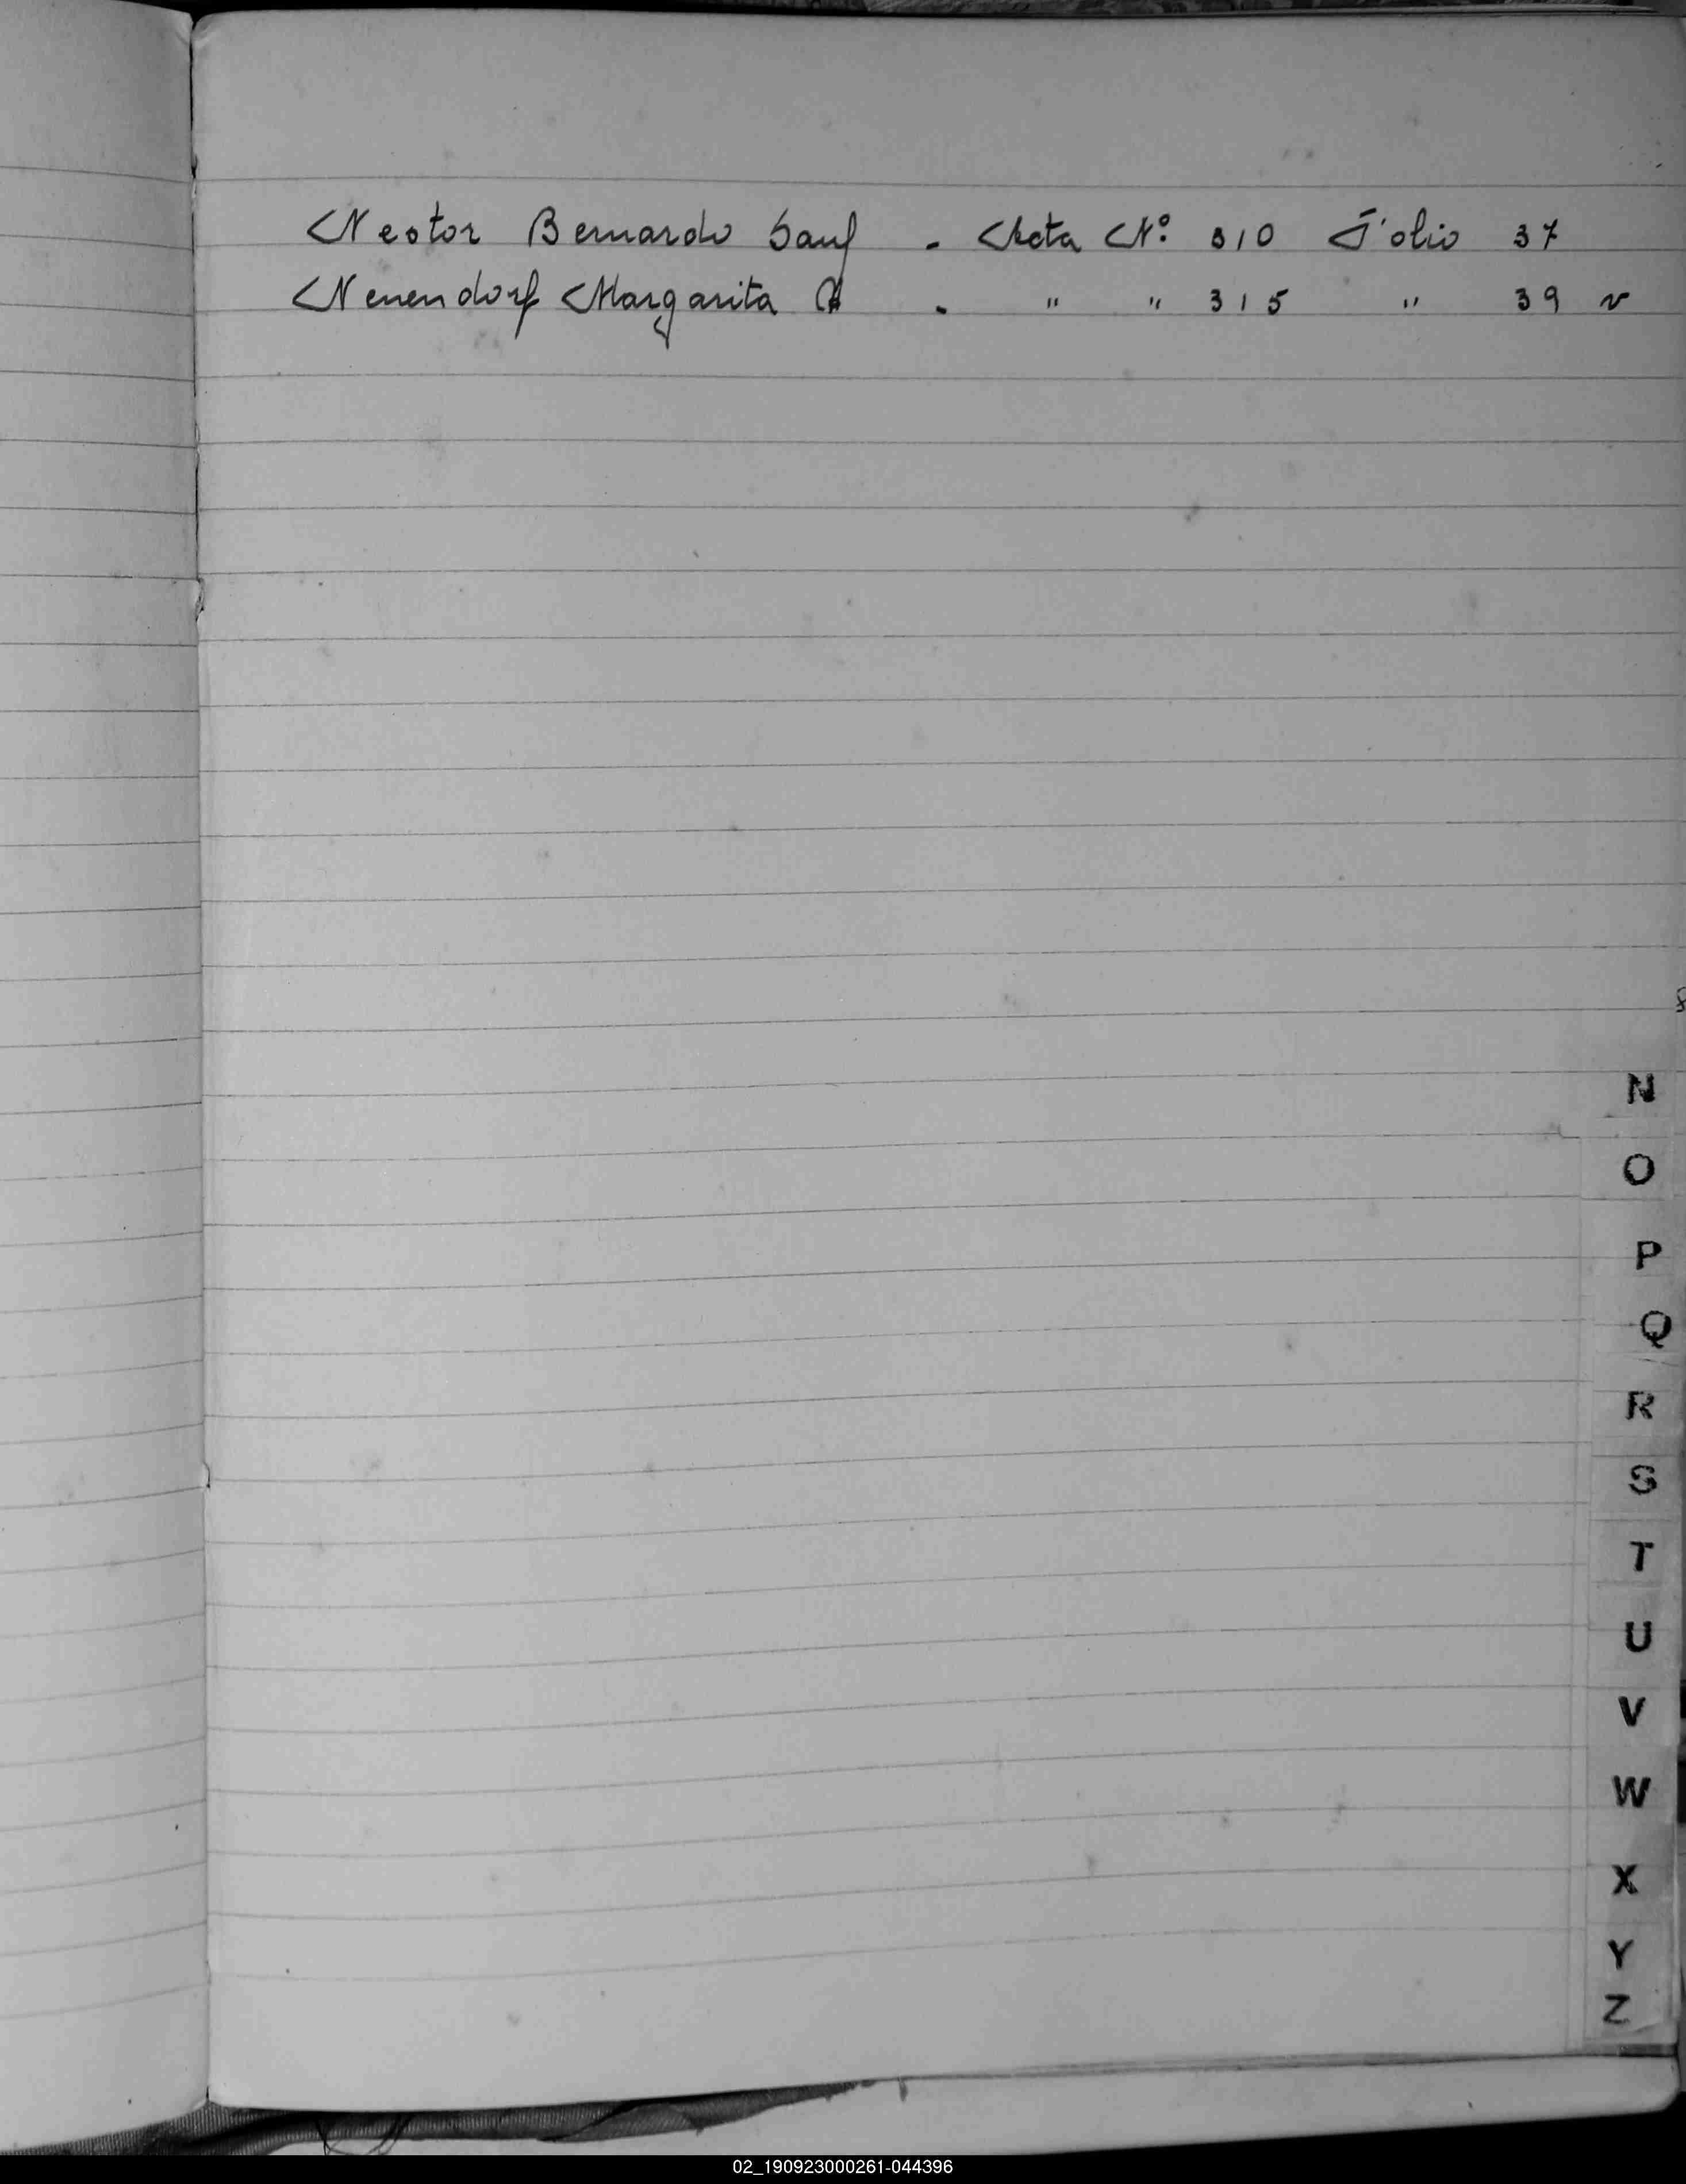 Nestor Bernardo Sauf - Acta Nº 310 Folio 37
Neuendorf Margarita - " " 315 " 39 v
N
O
P
Q
R
S
T
U
V
W
X
Y
Z
02_190923000261-044396